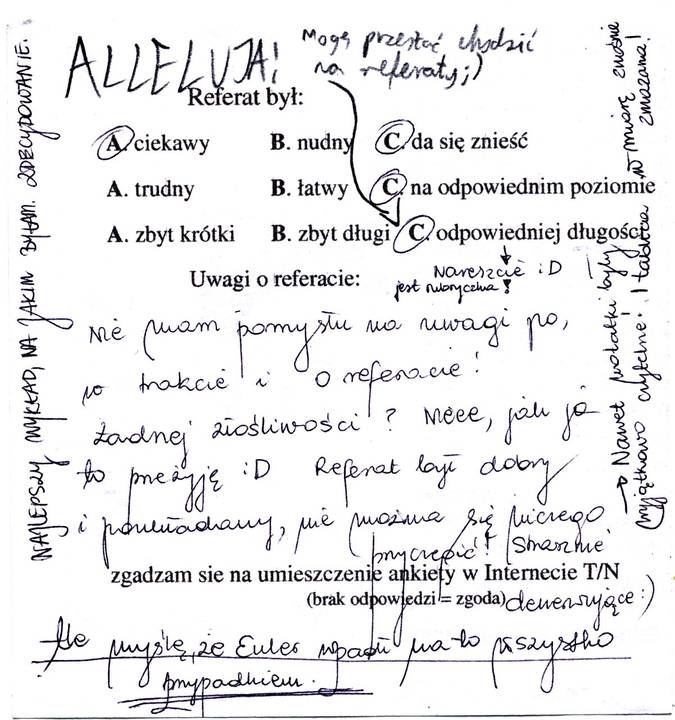 ALLELUJA!
Mogę przestać chodzić
na referaty ;)
Referat był:
A. ciekawy B. nudny C. da się znieść
A. trudny B. łatwy C. na odpowiednim poziomie
A. zbyt krótki B. zbyt długi C. odpowiedniej długości
Uwagi o referacie:
Nareszcie :D
jest rubryczka!
Nie mam pomysłu na uwagi po,
w trakcie i o referacie!
Żadnej złośliwości? Nieee, jak ja
to przeżyję :D Referat był dobry
i poukładany, nie można się niczego
przyczepić! Strasznie
zgadzam sie na umieszczenie ankiety w Internecie T/N
(brak odpowiedzi = zgoda)
denerwujące :)
Ale myślę, że Euler wpadł na to wszystko
przypadkiem.
NAJLEPSZY WYKŁAD, NA JAKIM BYŁAM. ZDECYDOWANIE.
→ Nawet notatki były
wyjątkowo czytelne! I tablica w miarę znośnie
zmazana!